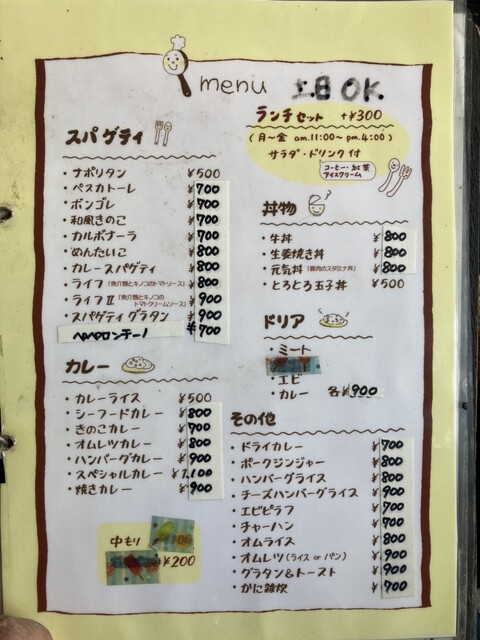 menu
土日OK.
ランチセット +¥300
(月〜金 am.11:00〜pm.4:00)
サラダ・ドリンク付
コーヒー・紅茶
アイスクリーム
スパゲティ
・ナポリタン ¥500
・ペスカトーレ ¥700
・ボンゴレ ¥700
・和風きのこ ¥700
・カルボナーラ ¥700
・めんたいこ ¥800
・カレースパゲティ ¥800
・ライフ「魚介類とキノコのトマトソース」 ¥800
・ライフⅡ「魚介類とキノコのトマトクリームソース」 ¥900
・スパゲティグラタン ¥900
ペペロンチーノ ¥700
カレー
・カレーライス ¥500
・シーフードカレー ¥800
・きのこカレー ¥700
・オムレツカレー ¥800
・ハンバーグカレー ¥900
・スペシャルカレー ¥1,100
・焼きカレー ¥900
中もり
¥200
丼物
・牛丼 ¥800
・生姜焼き丼 ¥800
・元気丼「豚肉のスタミナ丼」 ¥800
・とろとろ玉子丼 ¥500
ドリア
・ミート
・エビ
・カレー 各¥900
その他
・ドライカレー ¥700
・ポークジンジャー ¥800
・ハンバーグライス ¥800
・チーズハンバーグライス ¥900
・エビピラフ ¥700
・チャーハン ¥700
・オムライス ¥800
・オムレツ(ライス or パン) ¥900
・グラタン&トースト ¥900
・かに雑炊 ¥700